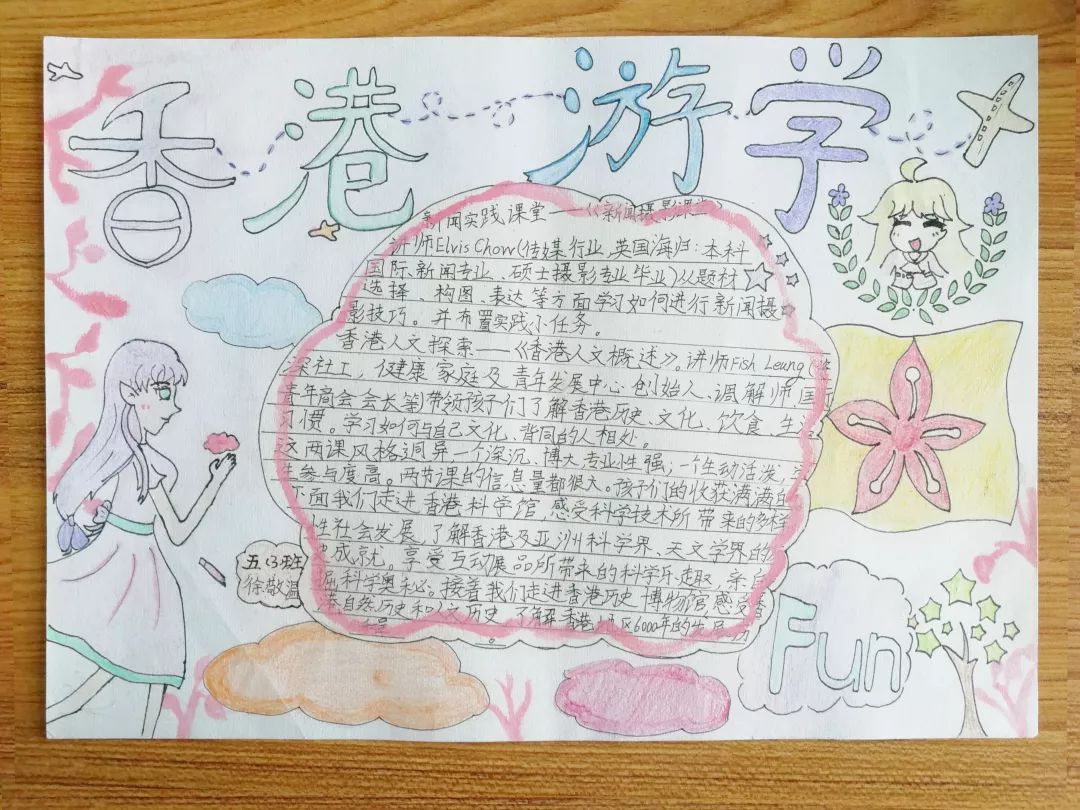 香港游学
新闻实践课堂——《新闻摄影课堂》
讲师Elvis Chow(传媒行业,英国海归:本科
国际新闻专业、硕士摄影专业毕业)从题材
选择、构图、表达等方面学习如何进行新闻摄
影技巧。并布置实践小任务。
香港人文探索——《香港人文概述》。讲师Fish Leung(
深社工,健康家庭及青年发展中心创始人、调解师国
青年商会会长等)带领孩子们了解香港历史、文化、饮食、生活
习惯。学习如何与自己文化、背同的人相处。
这两课风格迥异一个深沉、博大,专业性强;一个生动活泼,
生参与度高。两节课的信息量都很大。孩子们的收获满满的
下面我们走进香港科学馆,感受科学技术所带来的多样
性社会发展,了解香港及亚洲科学界、天文学界的
成就。享受互动展品所带来的科学乐趣,亲自
掘科学奥秘。接着我们走进香港历史博物馆,感受香
港自然历史和人文历史,了解香港地区6000年的发展历
五(3)班
徐敬温
Fun